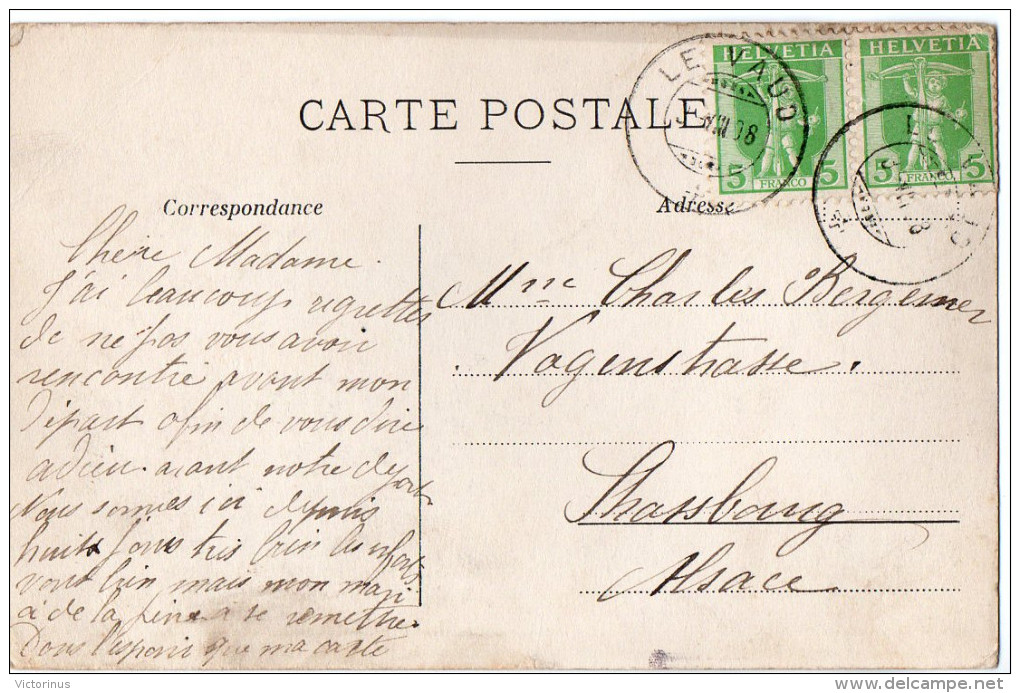 CARTE POSTALE
HELVETIA
HELVETIA
LE VAUD
5 FRANCO 5
5 FRANCO 5
Correspondance
Adresse
Chère Madame.
J'ai beaucoup regrettes
de ne pas vous avoir
rencontré avant mon
Départ afin de vous dire
adieu. avant notre depart
Nous sommes ici depuis
huit jours très bien les
vont bien mais mon mari
a de la peine a se remettre.
Dans l'espoir que ma carte
Mme Charles
Vogenstrasse.
Strassbourg
Alsace
Victorinus
delcampe.net